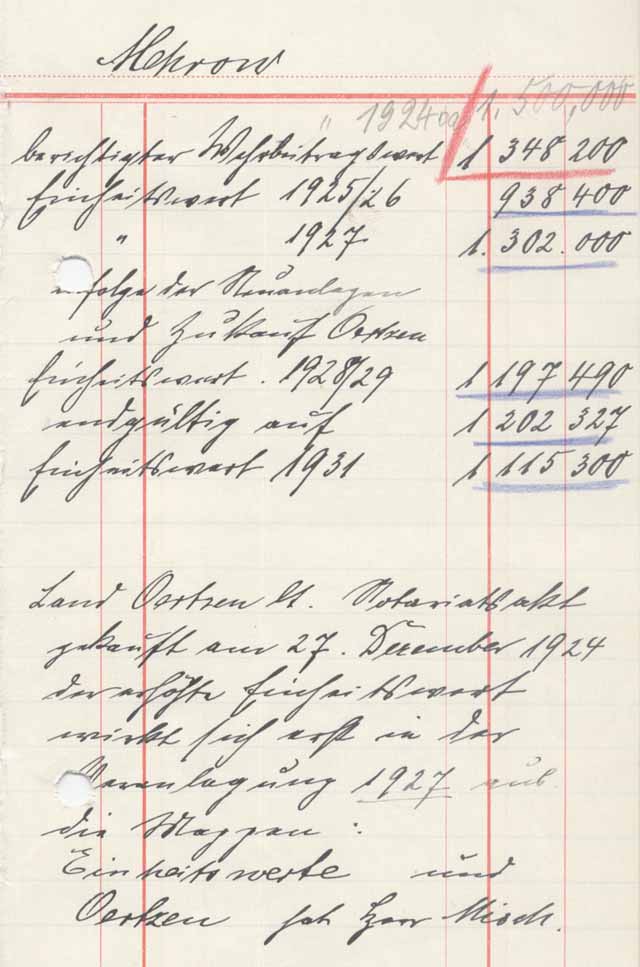 Mehrow
" 1924 1.500,000
berichtigter Wehrbeitragswert 1 348 200
Einheitswert 1925/26 938 400
" 1927 1.302.000
infolge der Neuanlagen
und Zukauf Oertzen
Einheitswert . 1928/29 1 197 490
endgültig auf 1 202 327
Einheitswert 1931 1 115 300
Land Oertzen lt. Notariatsakt
gekauft am 27. Dezember 1924
der erhöhte Einheitswert
wirkt sich erst in der
Veranlagung 1927 aus.
die Mappen :
Einheitswerte und
Oertzen hat Herr Misch.